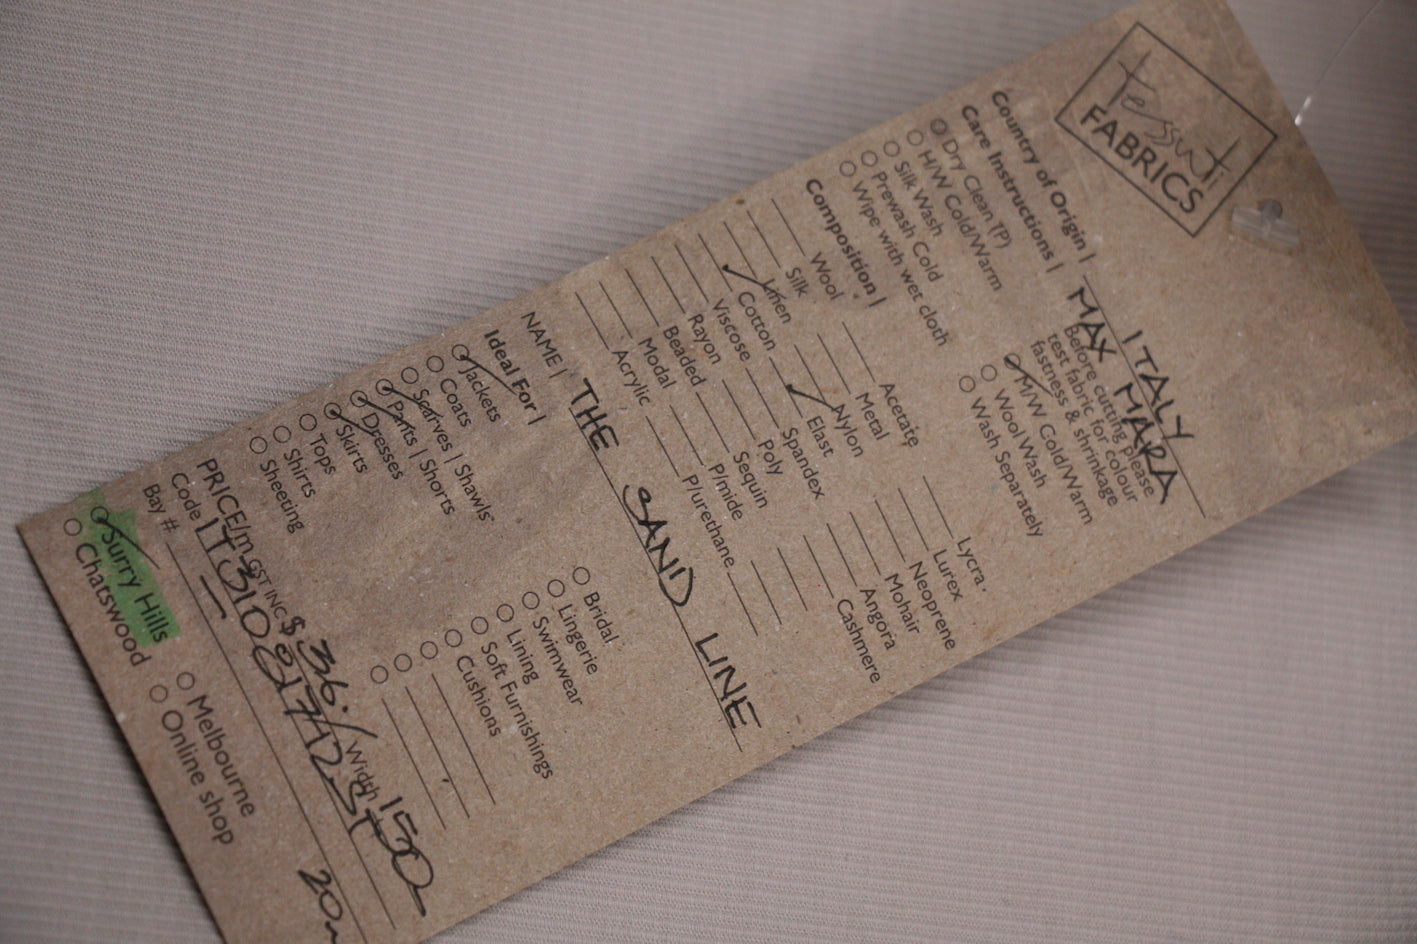 tessuti
FABRICS
Country of Origin | ITALY
MAX MARA
Care Instructions |
Before cutting please
test fabric for colour
fastness & shrinkage
Dry Clean (P)
H/W Cold/Warm
Silk Wash
Prewash Cold
Wipe with wet cloth
M/W Cold/Warm
Wool Wash
Wash Separately
Composition |
Wool
Silk
Linen
Cotton
Viscose
Rayon
Beaded
Modal
Acrylic
Acetate
Metal
Nylon
Elast
Spandex
Poly
Sequin
P/mide
P/urethane
Lycra
Lurex
Neoprene
Mohair
Angora
Cashmere
NAME | THE SAND LINE
Ideal For |
Jackets
Coats
Scarves | Shawls
Pants | Shorts
Dresses
Skirts
Tops
Shirts
Sheeting
Bridal
Lingerie
Swimwear
Lining
Soft Furnishings
Cushions
PRICE/m GST INC $ 36./ Width 150
Code |
Bay #
Surry Hills
Chatswood
Melbourne
Online shop